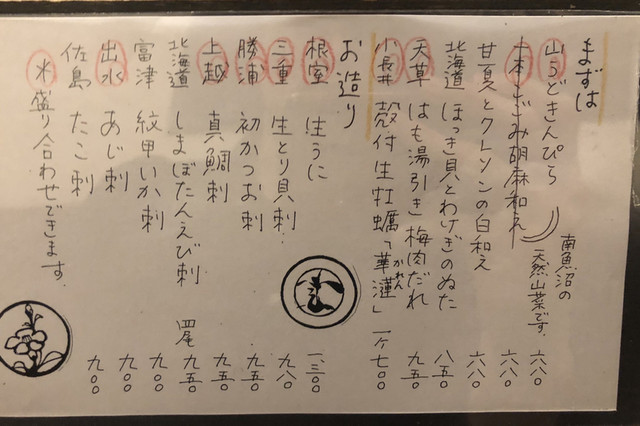 まずは
山うどきんぴら 六八〇
南魚沼の
天然山菜です。
一本こごみ胡麻和え 六八〇
甘夏とクレソンの白和え 六八〇
北海道 ほっき貝とわけぎのぬた 八五〇
天草 はも湯引き梅肉だれ 九五〇
小長井 殻付生牡蠣「華漣」 一ヶ七〇〇
かれん
お造り
根室 生うに 一、三〇〇
三重 生とり貝刺 九八〇
勝浦 初かつお刺 九五〇
上越 真鯛刺 九五〇
北海道 しまぼたんえび刺 四尾 九五〇
富津 紋甲いか刺 九〇〇
出水 あじ刺 九〇〇
佐島 たこ刺 九〇〇
盛り合わせできます。